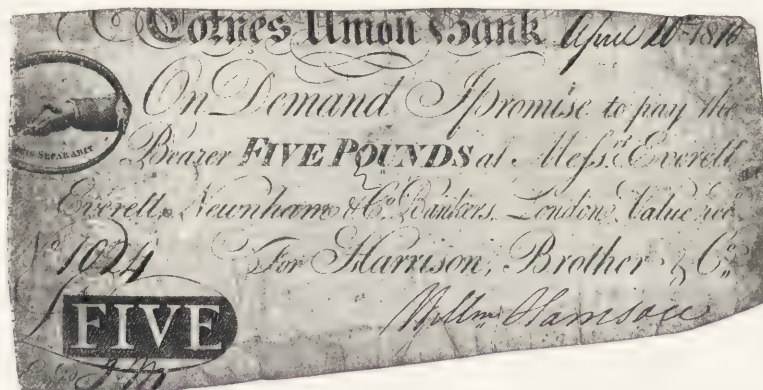 Totnes Union Bank April 20th 1810
On Demand I promise to pay the
Bearer FIVE POUNDS at Messrs. Everett
SEPARABIT
Everett, Newnham & Co. Bankers, London, Value recd.
No. 1024 For Harrison, Brother & Co.
Willm Harrison
FIVE